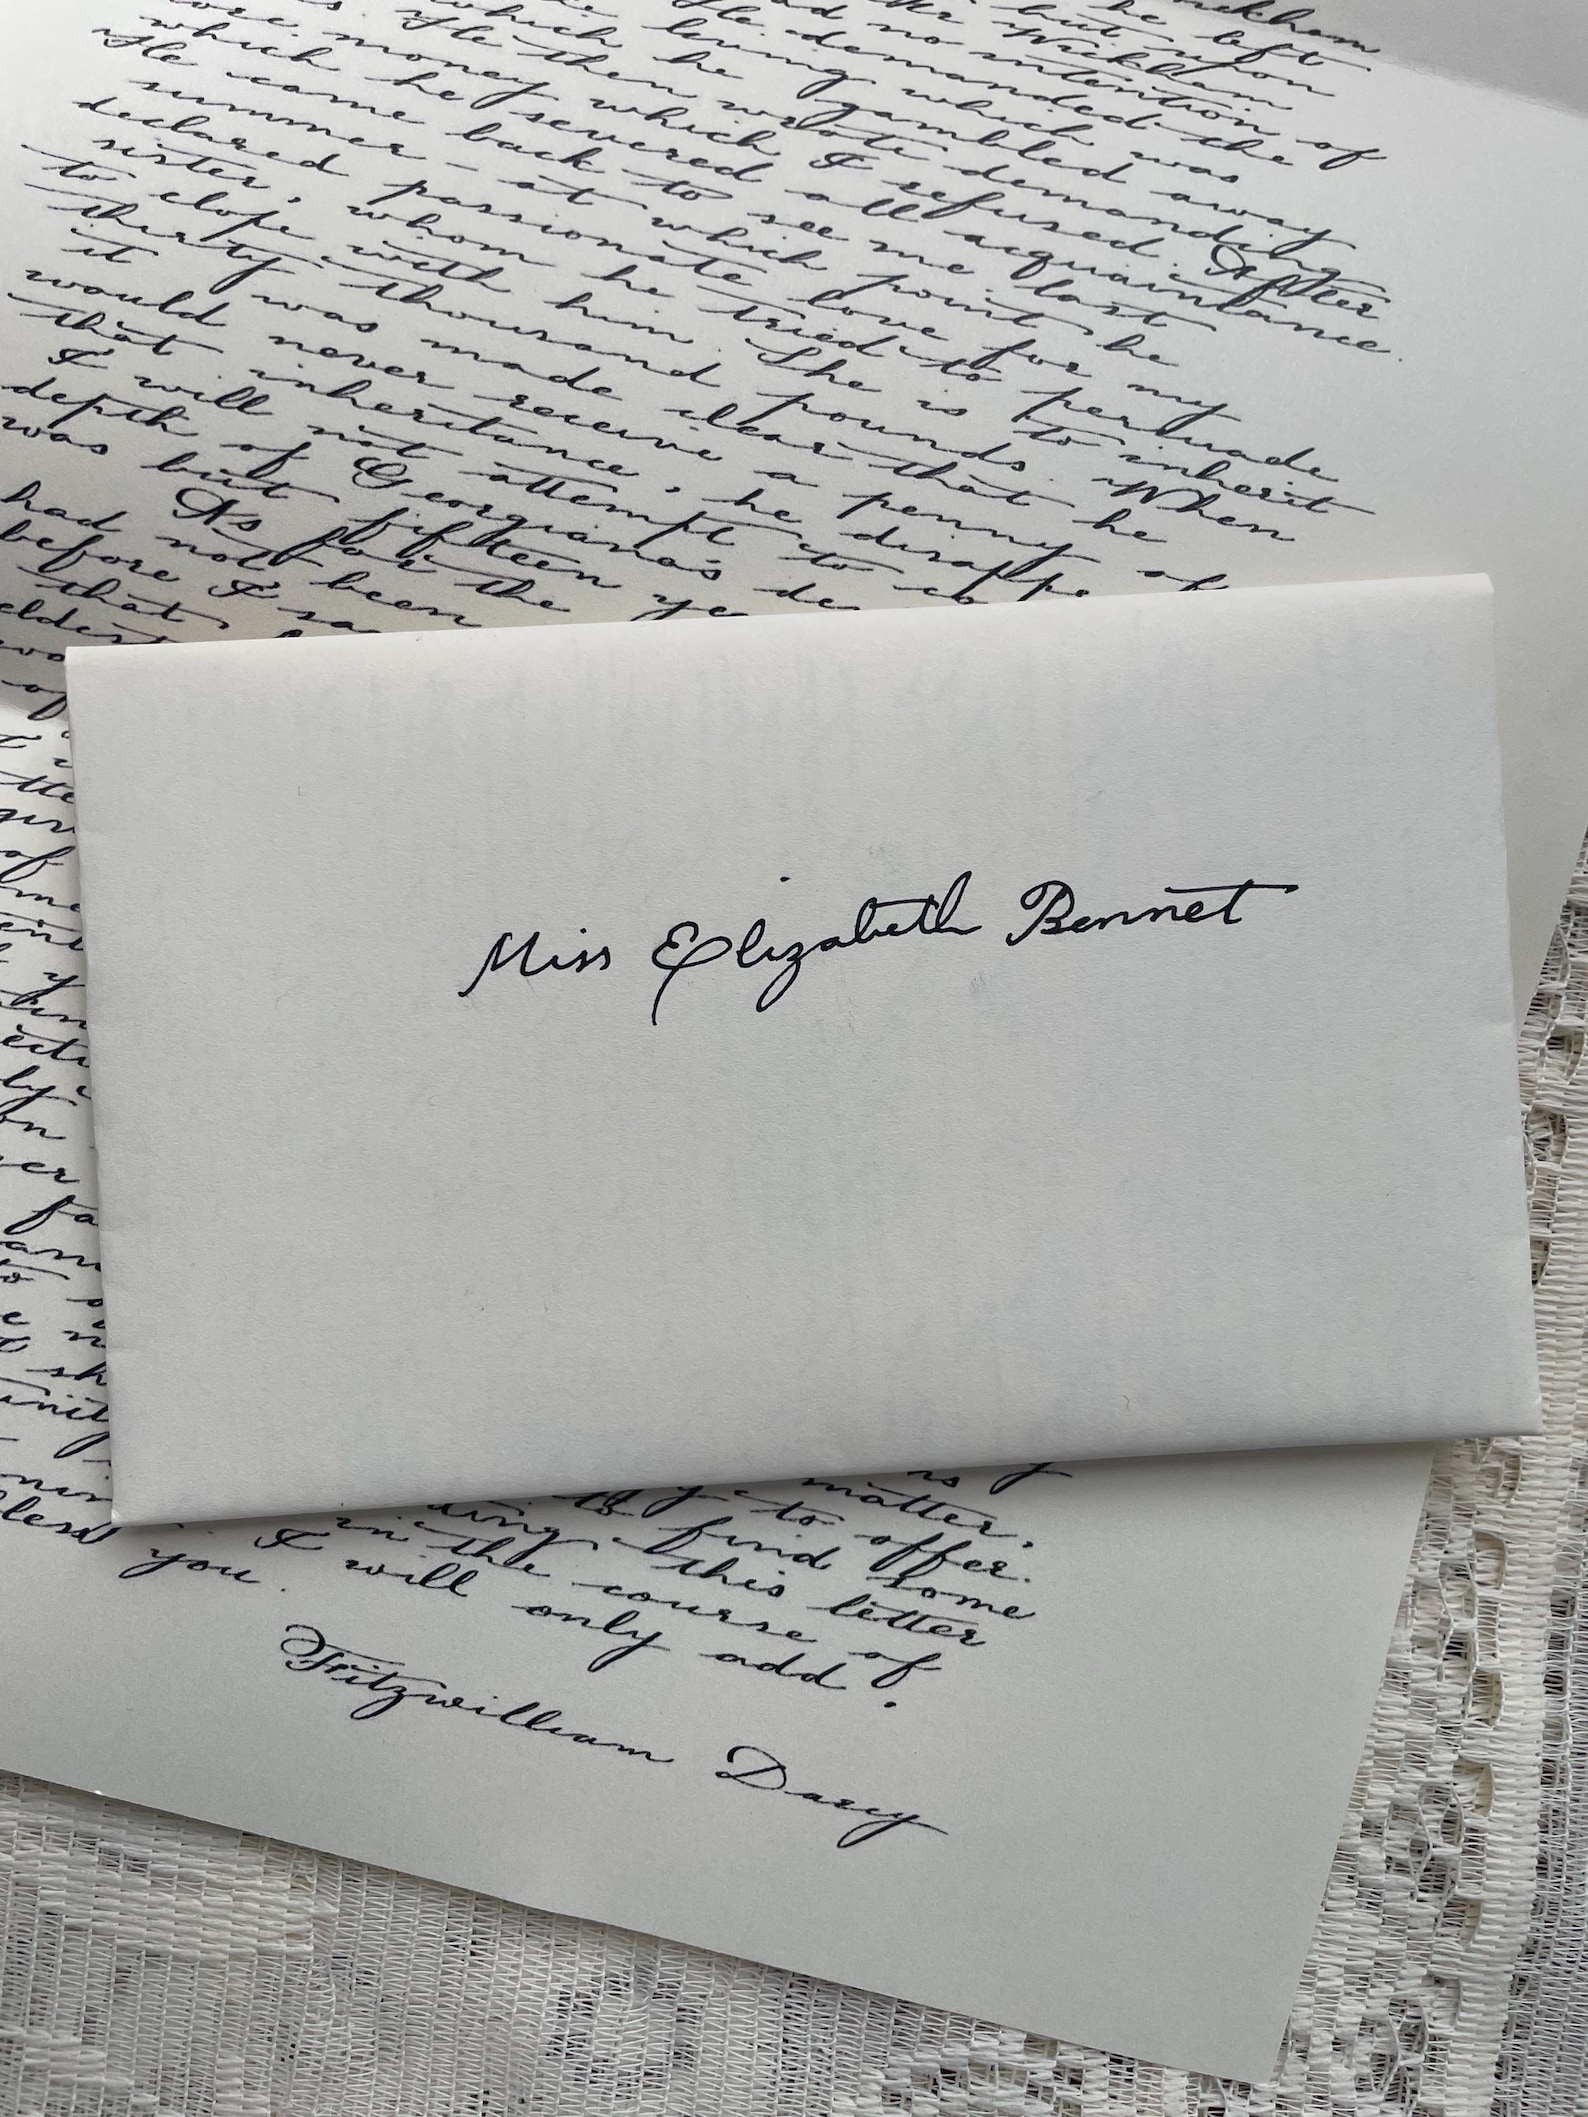 he left
but upon
Mr Wickham
no intention of
He demanded the
living which was
which he gambled away
He then wrote demanding
more money which I refused. After
which he severed all acquaintance.
He came back to see me last
summer - at which point he
declared passionate love for my
sister, whom he tried to persuade
to elope with him. She is to inherit
thirty thousand pounds. When
it was made clear that he
would never receive a penny of
that inheritance, he disappe
I will not attempt to co
depth of Georgiana's de
was but fifteen ye
As for the
had not been
before I sa
that
eldest
of
Miss Elizabeth Bennet
is
matter,
to offer.
to find some
ding this letter
in the course of
I will only add.
bless you.
Fitzwilliam Darcy